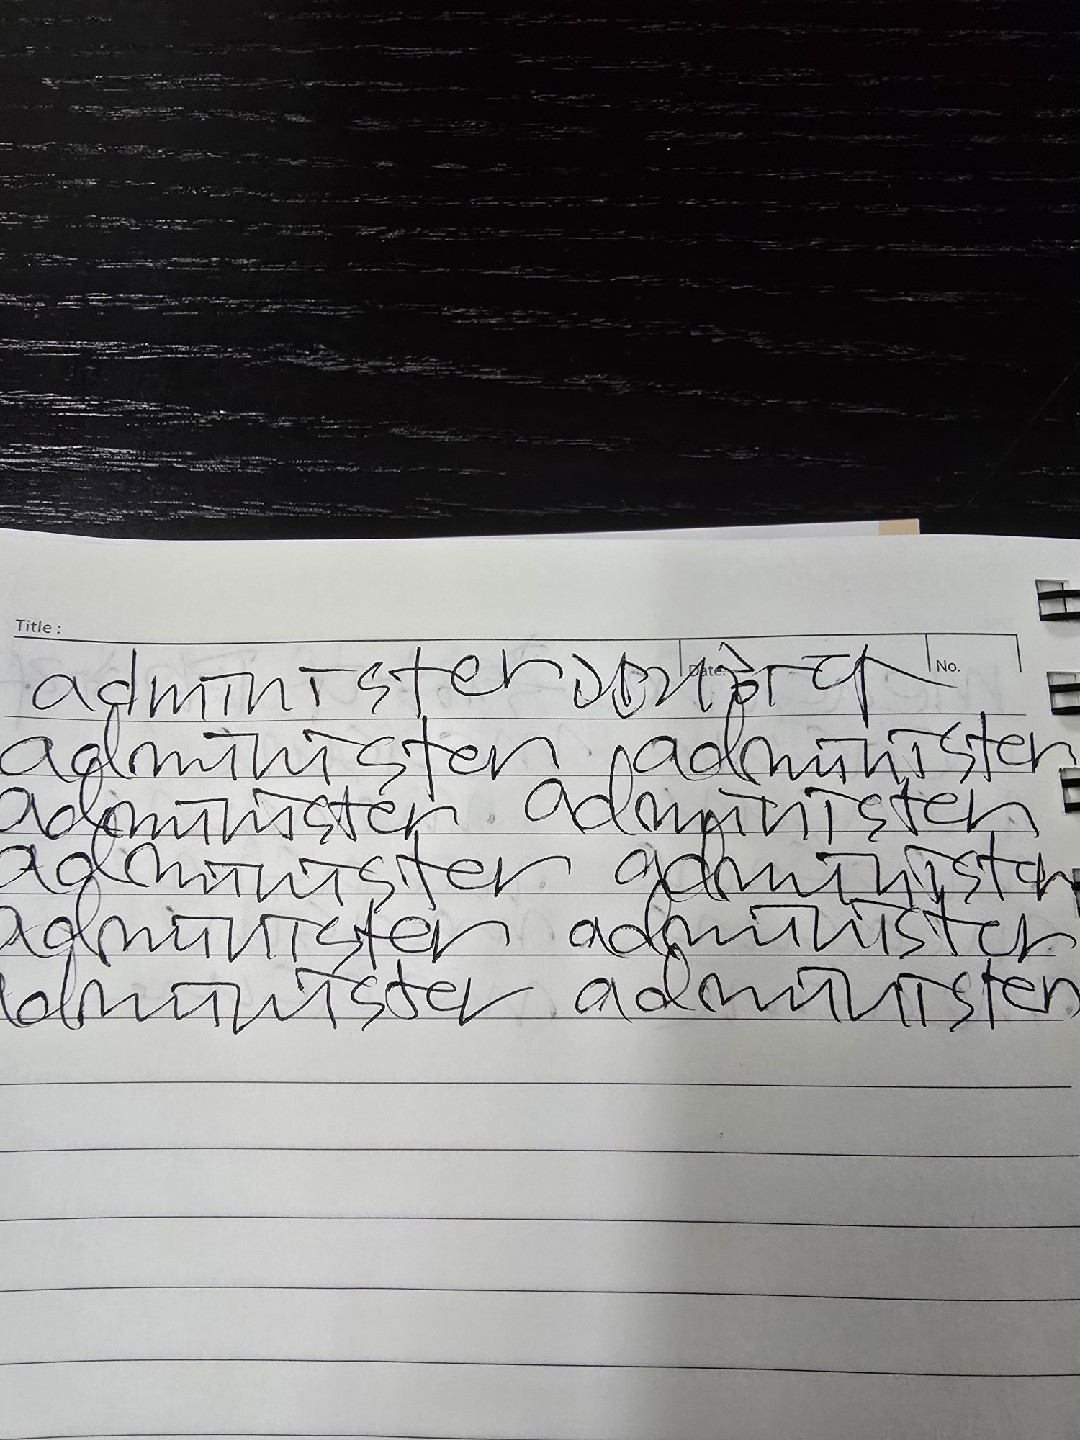 Title :
administer Date: No.
administer administer
administer administer
administer administer
administer administer
administer administer